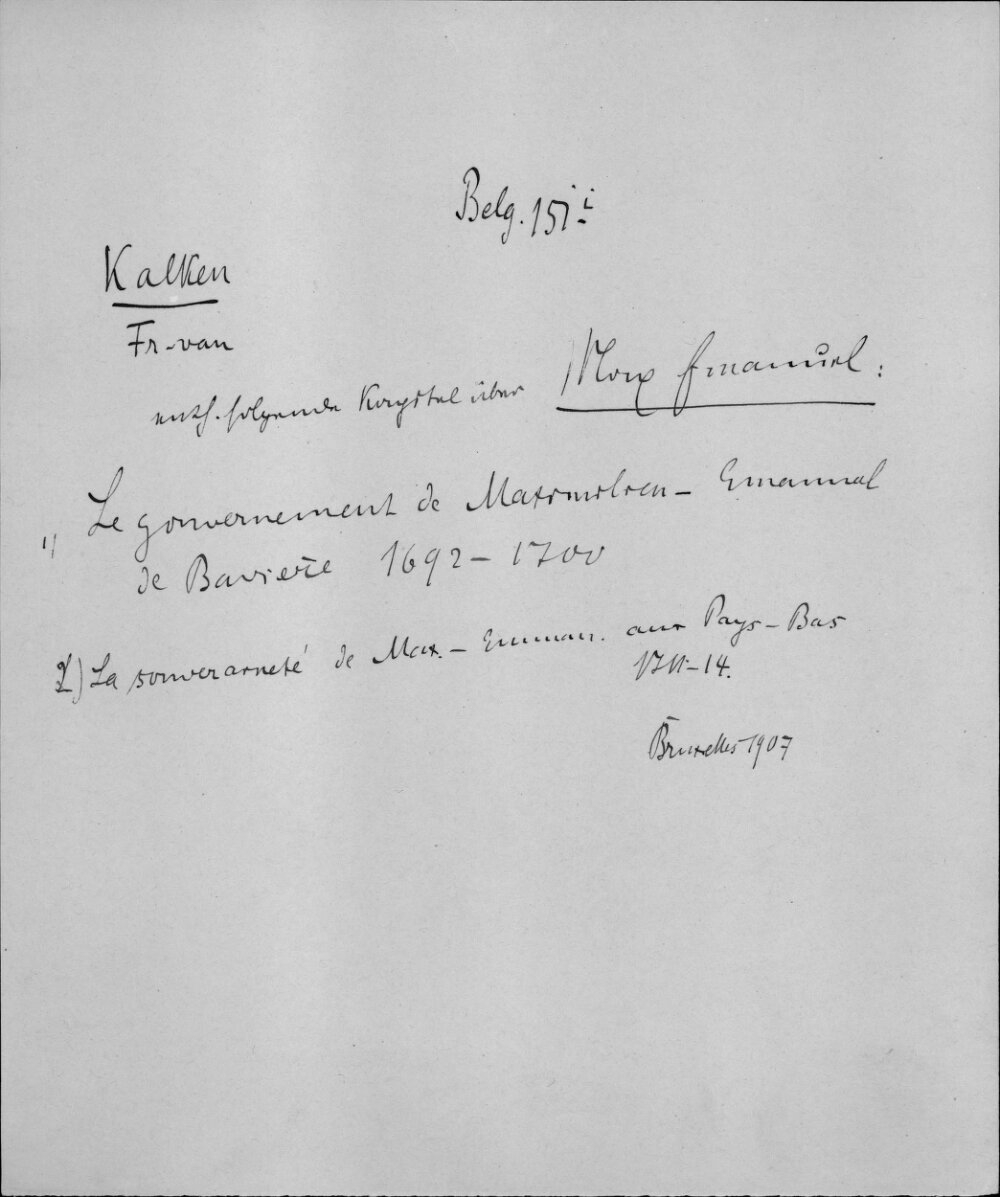 Belg. 151 i
Kalken
Fr. van
enth. folgende Kapitel über Max Emanuel:
1) Le gouvernement de Maximilien-Emanuel
de Bavière 1692-1700
2) La souveraineté de Max.-Emman. aux Pays-Bas
1711-14.
Bruxelles 1907